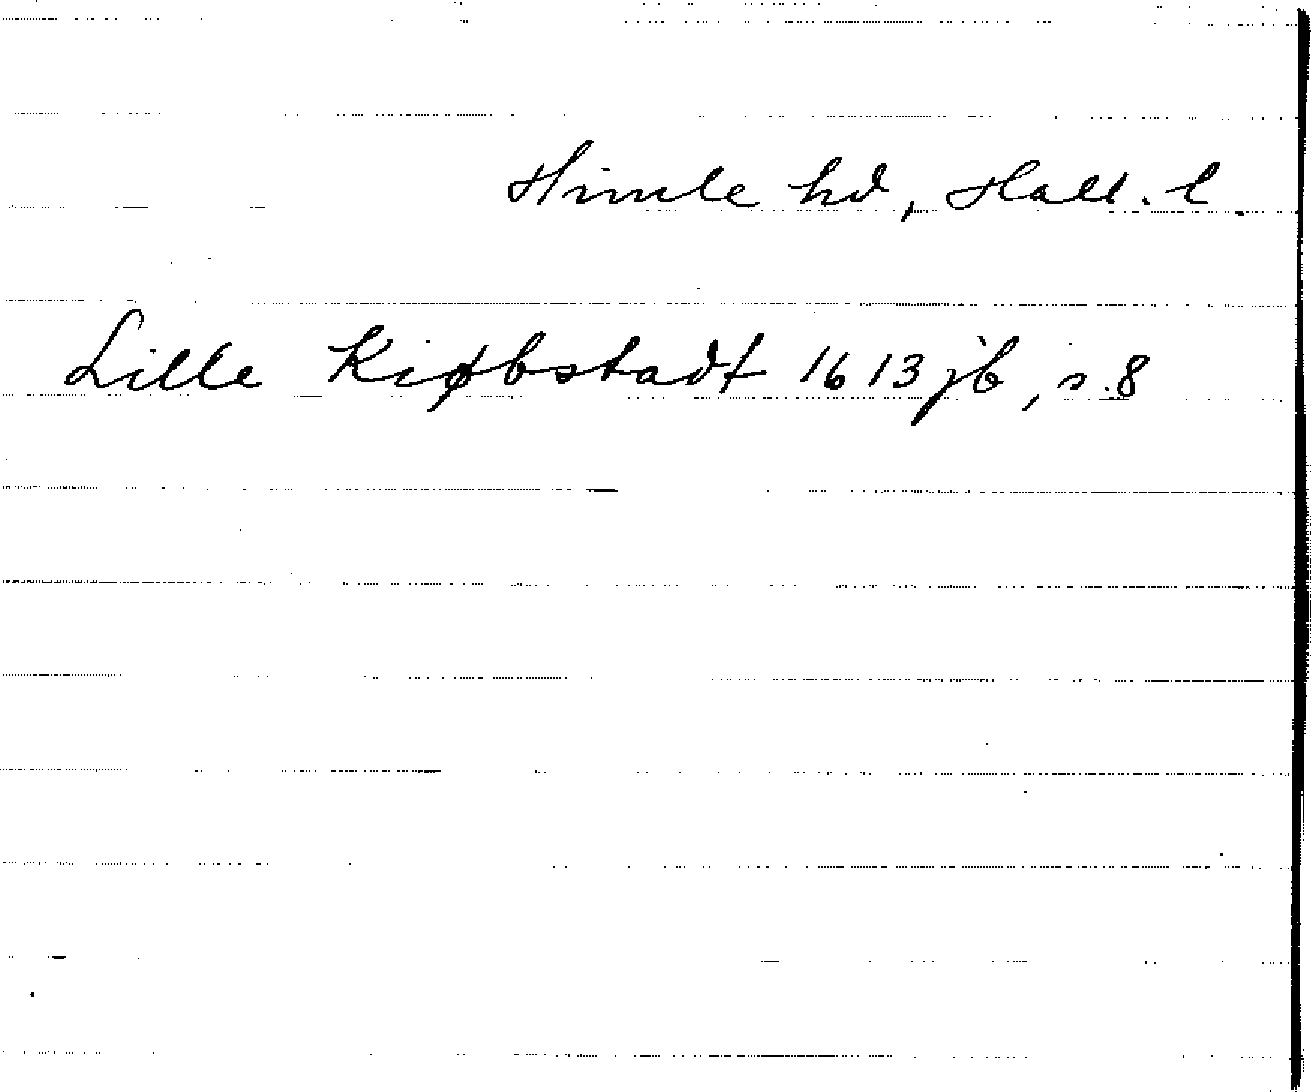 Himle hd, Hall. l.
Lille Kiøbstadt 1613 jb, s. 8